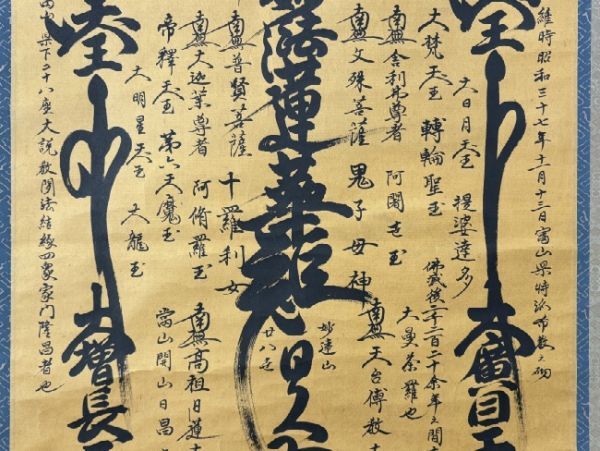 維時昭和三十七年十一月十三日富山県特派布教之砌
大廣目天
大日月天王 提婆達多
佛滅後二千二百二十余年之間
大曼荼羅也
大梵天王 轉輪聖王
南無舎利弗尊者 阿闍世王
南無文殊菩薩 鬼子母神
南無天台傳教大
妙連山
廿八世
法蓮華經
南無普賢菩薩 十羅刹女
南無大迦葉尊者 阿脩羅王
南無高祖日蓮大
帝釋天王 第六天魔王
當山開山日昌
大明星天王 大龍王
大増長天
県下二十八座大説教聞法結縁四衆家門隆昌者也